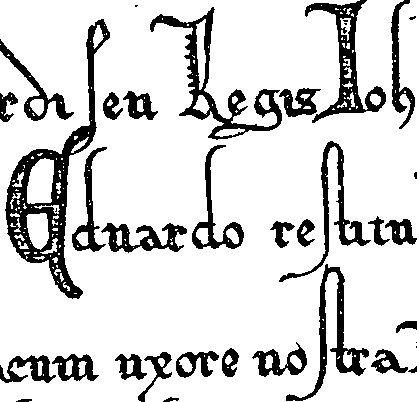 rdi sen Regis Joh
Eduardo restitu
acum uxore nostra